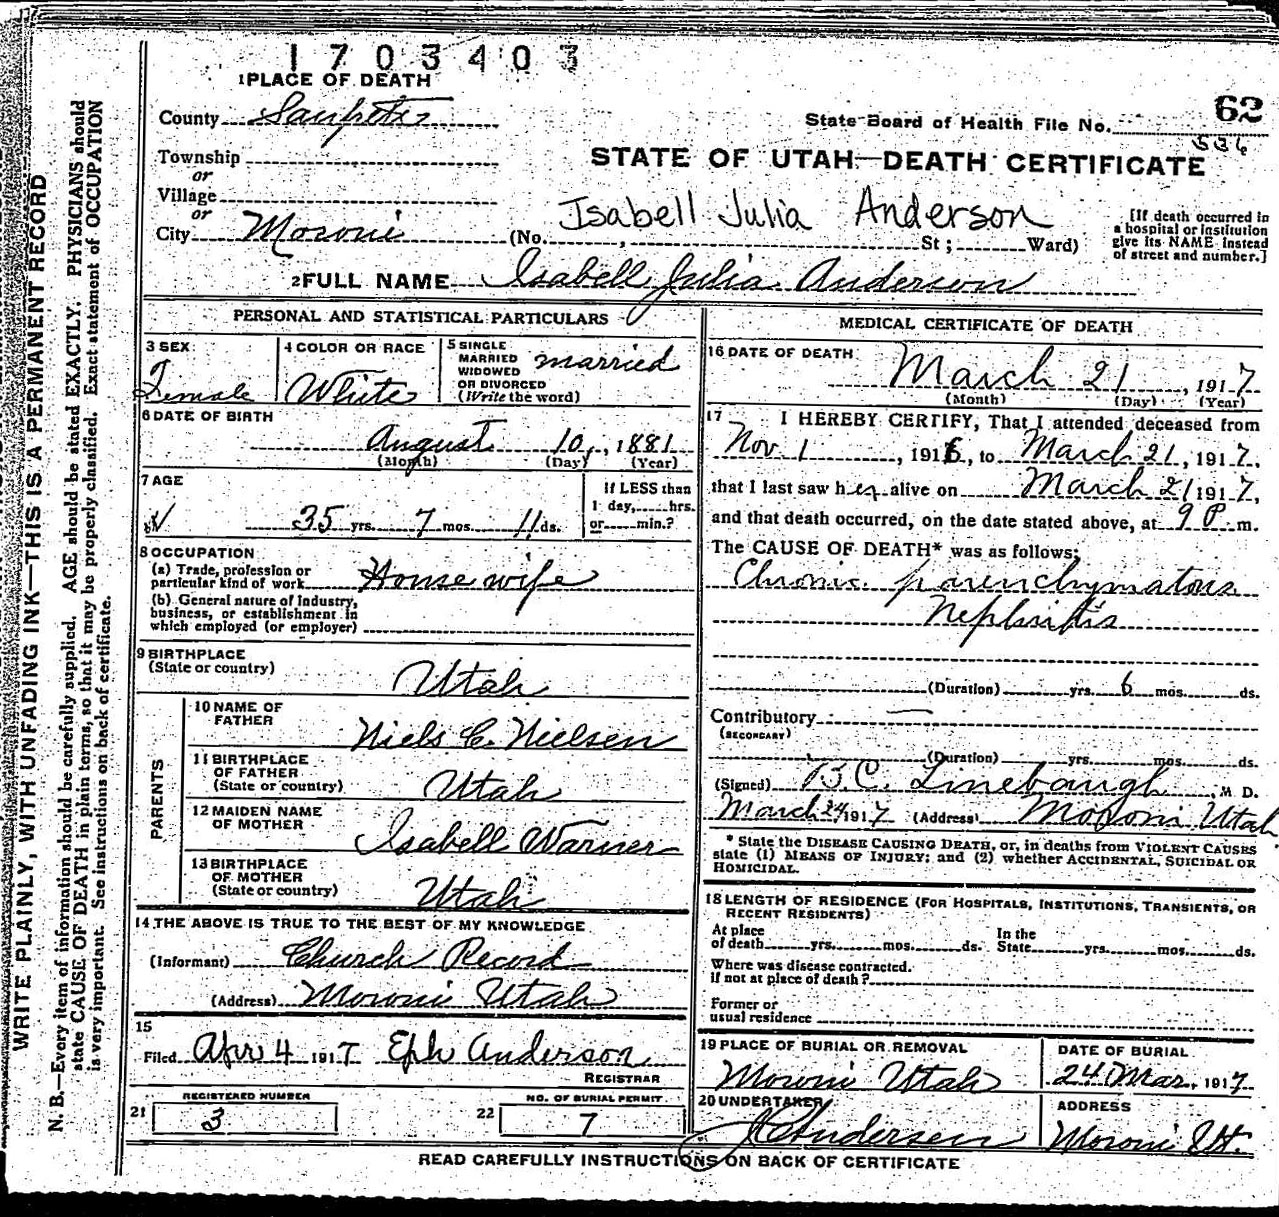 1703403
1 PLACE OF DEATH
County Sanpete
62
State Board of Health File No.
536
Township
or
Village
or
City Moroni
STATE OF UTAH—DEATH CERTIFICATE
Isabell Julia Anderson
(No. , St; Ward)
[If death occurred in
a hospital or institution
give its NAME instead
of street and number.]
2 FULL NAME Isabell Julia Anderson
PERSONAL AND STATISTICAL PARTICULARS
3 SEX
Female
4 COLOR OR RACE
White
5 SINGLE
MARRIED
WIDOWED
OR DIVORCED
(Write the word)
married
6 DATE OF BIRTH
August 10, 1881
(Month) (Day) (Year)
7 AGE
35 yrs. 7 mos. 11 ds.
If LESS than
1 day, hrs.
or min.?
8 OCCUPATION
(a) Trade, profession or
particular kind of work Housewife
(b) General nature of Industry,
business, or establishment in
which employed (or employer)
9 BIRTHPLACE
(State or country)
Utah
PARENTS
10 NAME OF
FATHER
Niels C. Nielsen
11 BIRTHPLACE
OF FATHER
(State or country)
Utah
12 MAIDEN NAME
OF MOTHER
Isabell Warner
13 BIRTHPLACE
OF MOTHER
(State or country)
Utah
14 THE ABOVE IS TRUE TO THE BEST OF MY KNOWLEDGE
(Informant) Church Record
(Address) Moroni Utah
15
Filed Apr 4 1917 Eph Anderson
REGISTRAR
21
REGISTERED NUMBER
3
22
NO. OF BURIAL PERMIT
7
MEDICAL CERTIFICATE OF DEATH
16 DATE OF DEATH
March 21, 1917
(Month) (Day) (Year)
17 I HEREBY CERTIFY, That I attended deceased from
Nov 1, 1916, to March 21, 1917,
that I last saw her alive on March 21 1917,
and that death occurred, on the date stated above, at 9 P m.
The CAUSE OF DEATH* was as follows:
Chronic parenchymatous
Nephritis
(Duration) yrs. 6 mos. ds.
Contributory —
(SECONDARY)
(Duration) yrs. mos. ds.
(Signed) B.C. Linebaugh, M D.
March 24 1917 (Address) Moroni Utah
* State the DISEASE CAUSING DEATH, or, in deaths from VIOLENT CAUSES
state (1) MEANS OF INJURY; and (2) whether ACCIDENTAL, SUICIDAL OR
HOMICIDAL.
18 LENGTH OF RESIDENCE (FOR HOSPITALS, INSTITUTIONS, TRANSIENTS, OR
RECENT RESIDENTS)
At place
of death yrs. mos. ds.
In the
State yrs. mos. ds.
Where was disease contracted.
if not at place of death?
Former or
usual residence
19 PLACE OF BURIAL OR REMOVAL
Moroni Utah
DATE OF BURIAL
24 Mar, 1917
20 UNDERTAKER
Andersen
ADDRESS
Moroni Ut.
READ CAREFULLY INSTRUCTIONS ON BACK OF CERTIFICATE
WRITE PLAINLY, WITH UNFADING INK—THIS IS A PERMANENT RECORD
N. B.—Every item of information should be carefully supplied. AGE should be stated EXACTLY. PHYSICIANS should
state CAUSE OF DEATH in plain terms, so that it may be properly classified. Exact statement of OCCUPATION
is very important. See instructions on back of certificate.